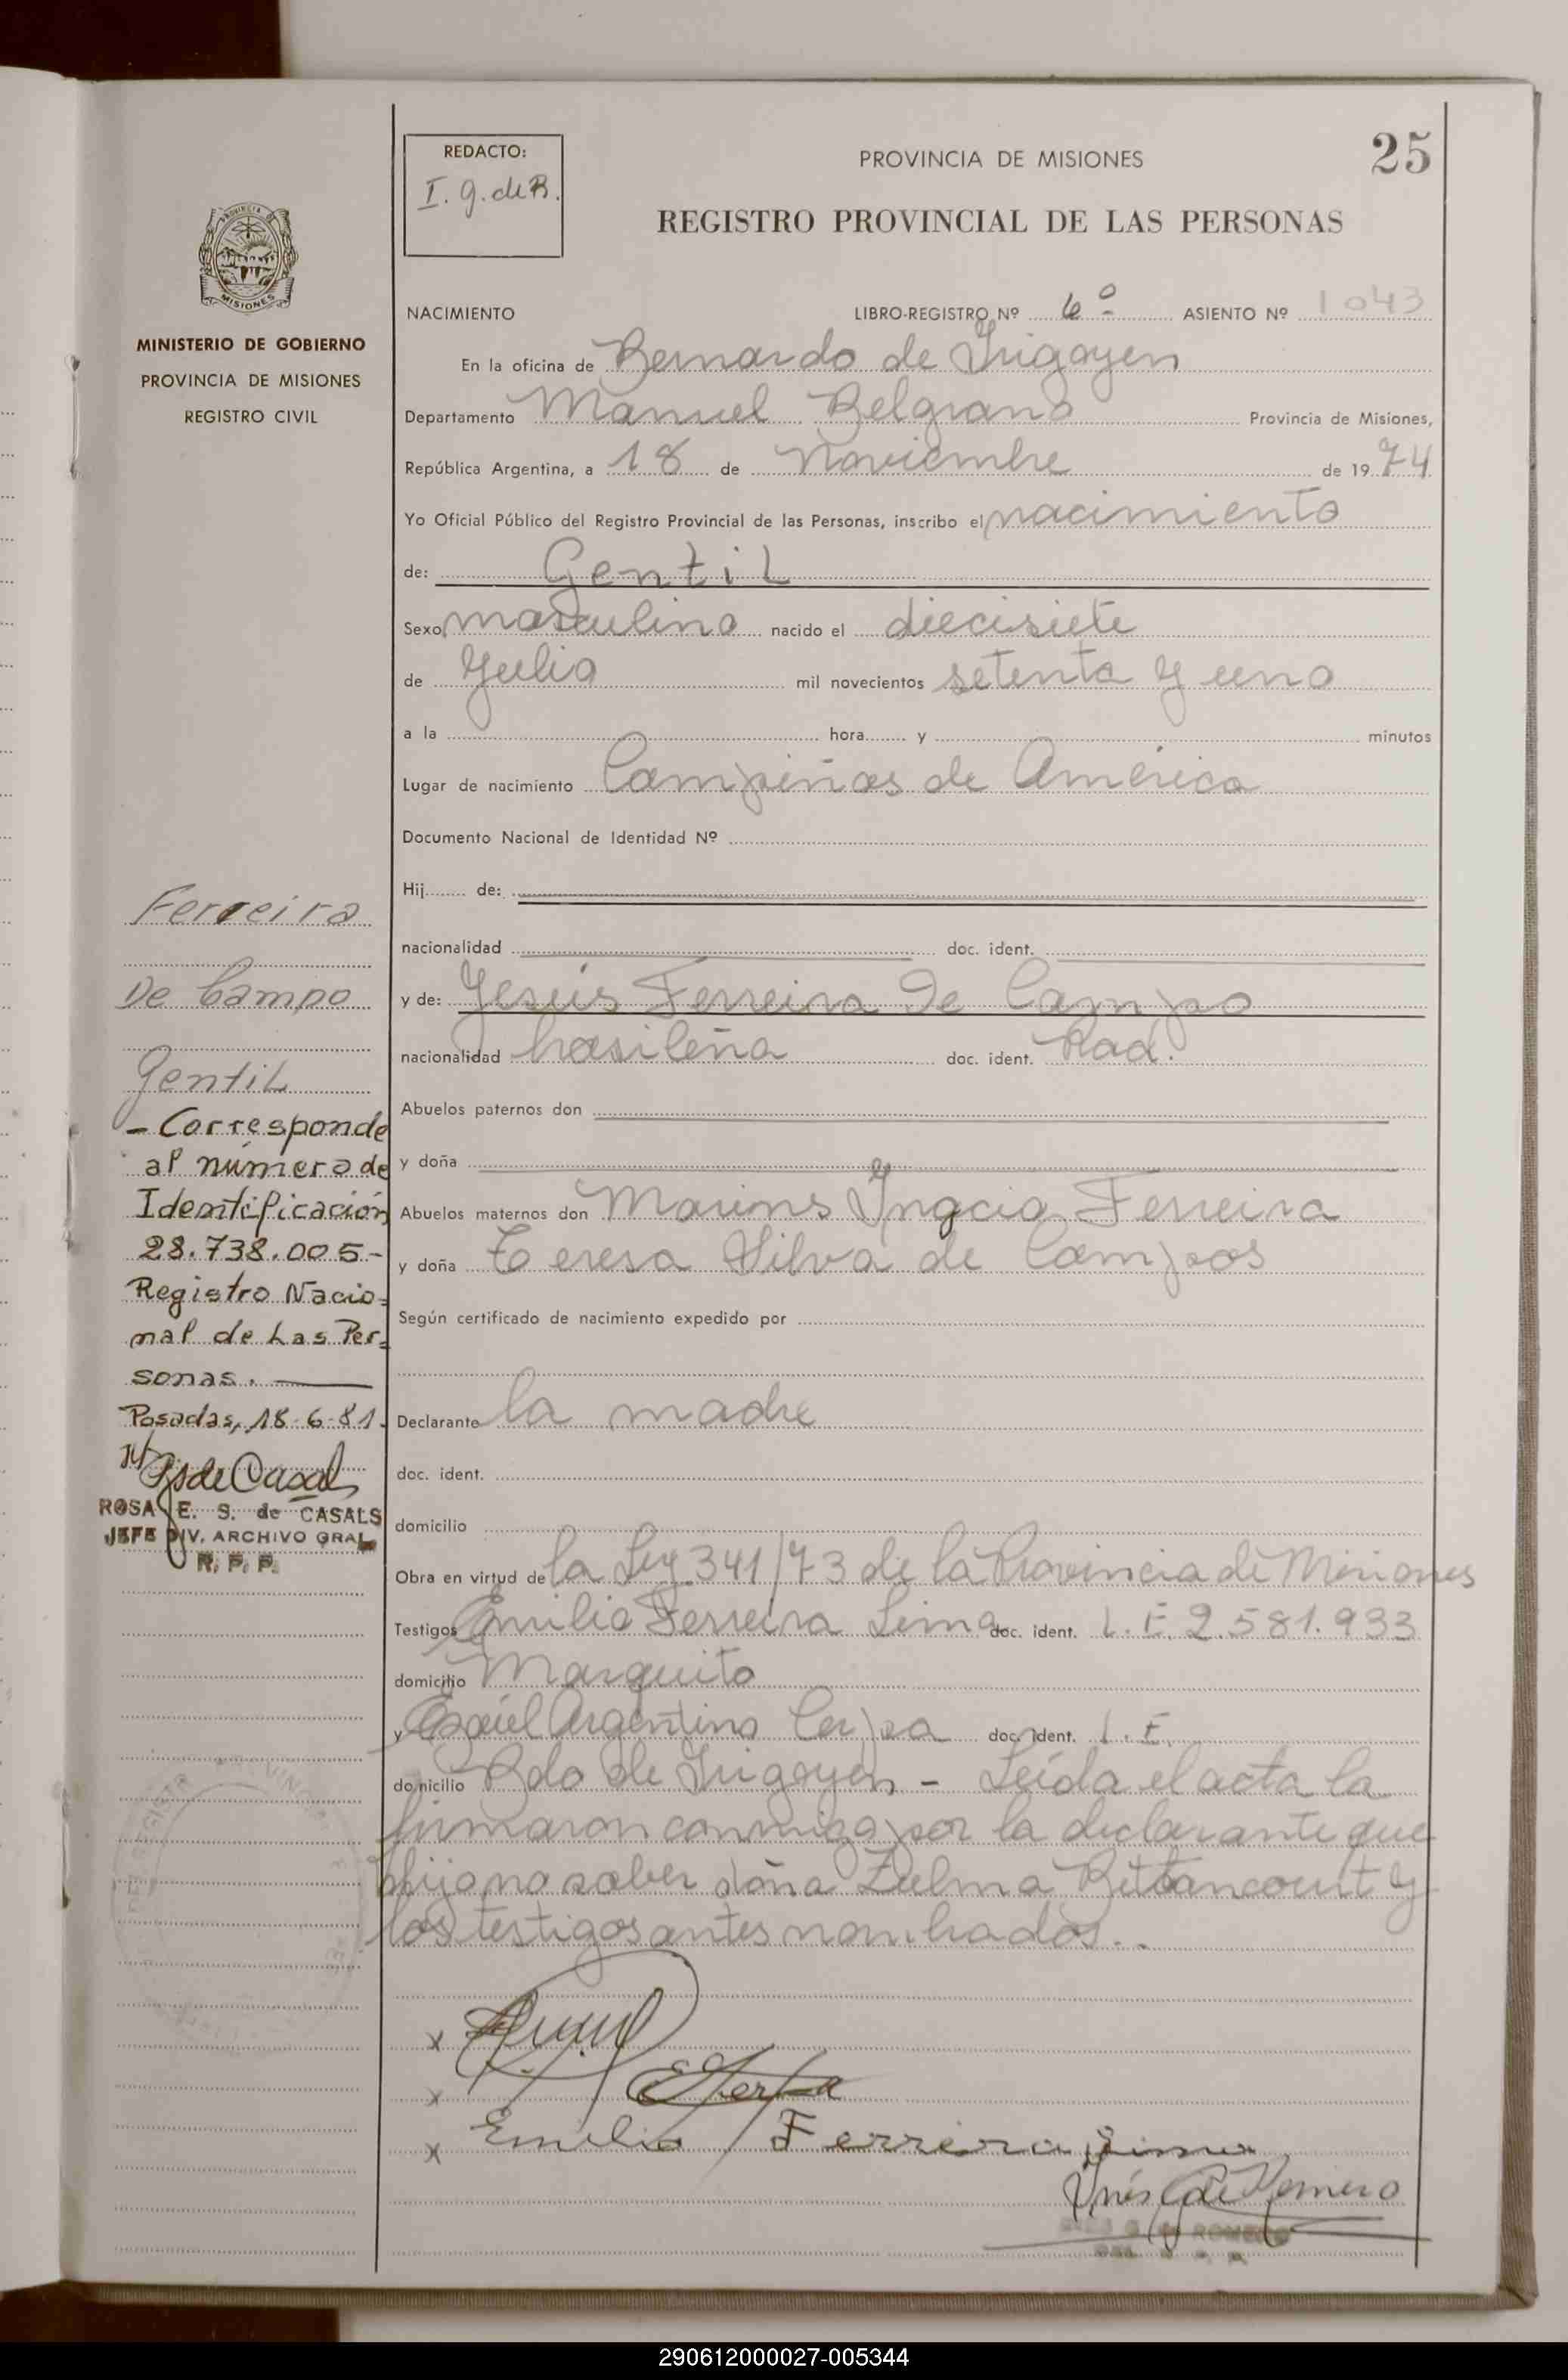 REDACTO:
I. g. de R.
PROVINCIA DE MISIONES
25
REGISTRO PROVINCIAL DE LAS PERSONAS
NACIMIENTO LIBRO-REGISTRO Nº 6º ASIENTO Nº 1043
En la oficina de Bernardo de Irigoyen
Departamento Manuel Belgrano Provincia de Misiones,
República Argentina, a 18 de Noviembre de 1974
Yo Oficial Público del Registro Provincial de las Personas, inscribo el nacimiento
de: Gentil
Sexo masculino nacido el diecisiete
de Julio mil novecientos setenta y uno
a la hora y minutos
Lugar de nacimiento Campiñas de América
Documento Nacional de Identidad Nº
Hij de:
nacionalidad doc. ident.
y de: Jesús Ferreira De Campo
nacionalidad brasileña doc. ident. Rad.
Abuelos paternos don
y doña
Abuelos maternos don Marins Ingacia Ferreira
y doña Teresa Silva de Campos
Según certificado de nacimiento expedido por
Declarante la madre
doc. ident.
domicilio
Obra en virtud de la Ley 341/73 de la Provincia de Misiones
Testigos Emilio Ferreira Lima doc. ident. L.E. 2.581.933
domicilio Marquito
y Argentino Cerpa doc. ident. L.E.
domicilio Bdo de Irigoyen - Leída el acta la
firmaron conmigo por la declarante que
dijo no saber doña Zulma Bittancourt y
los testigos antes nombrados..
x
x ECerpa
x Emilio Ferreira Lima
Inés G de Romero
INES G. de ROMERO
PROVINCIA DE
MISIONES
MINISTERIO DE GOBIERNO
PROVINCIA DE MISIONES
REGISTRO CIVIL
Ferreira
De Campo
Gentil
- Corresponde
al número de
Identificación
28.738.005.-
Registro Nacio=
nal de Las Per=
sonas.
Posadas, 18-6-81.
ROSA E. S. de CASALS
JEFE DIV. ARCHIVO GRAL
R. P. P.
290612000027-005344